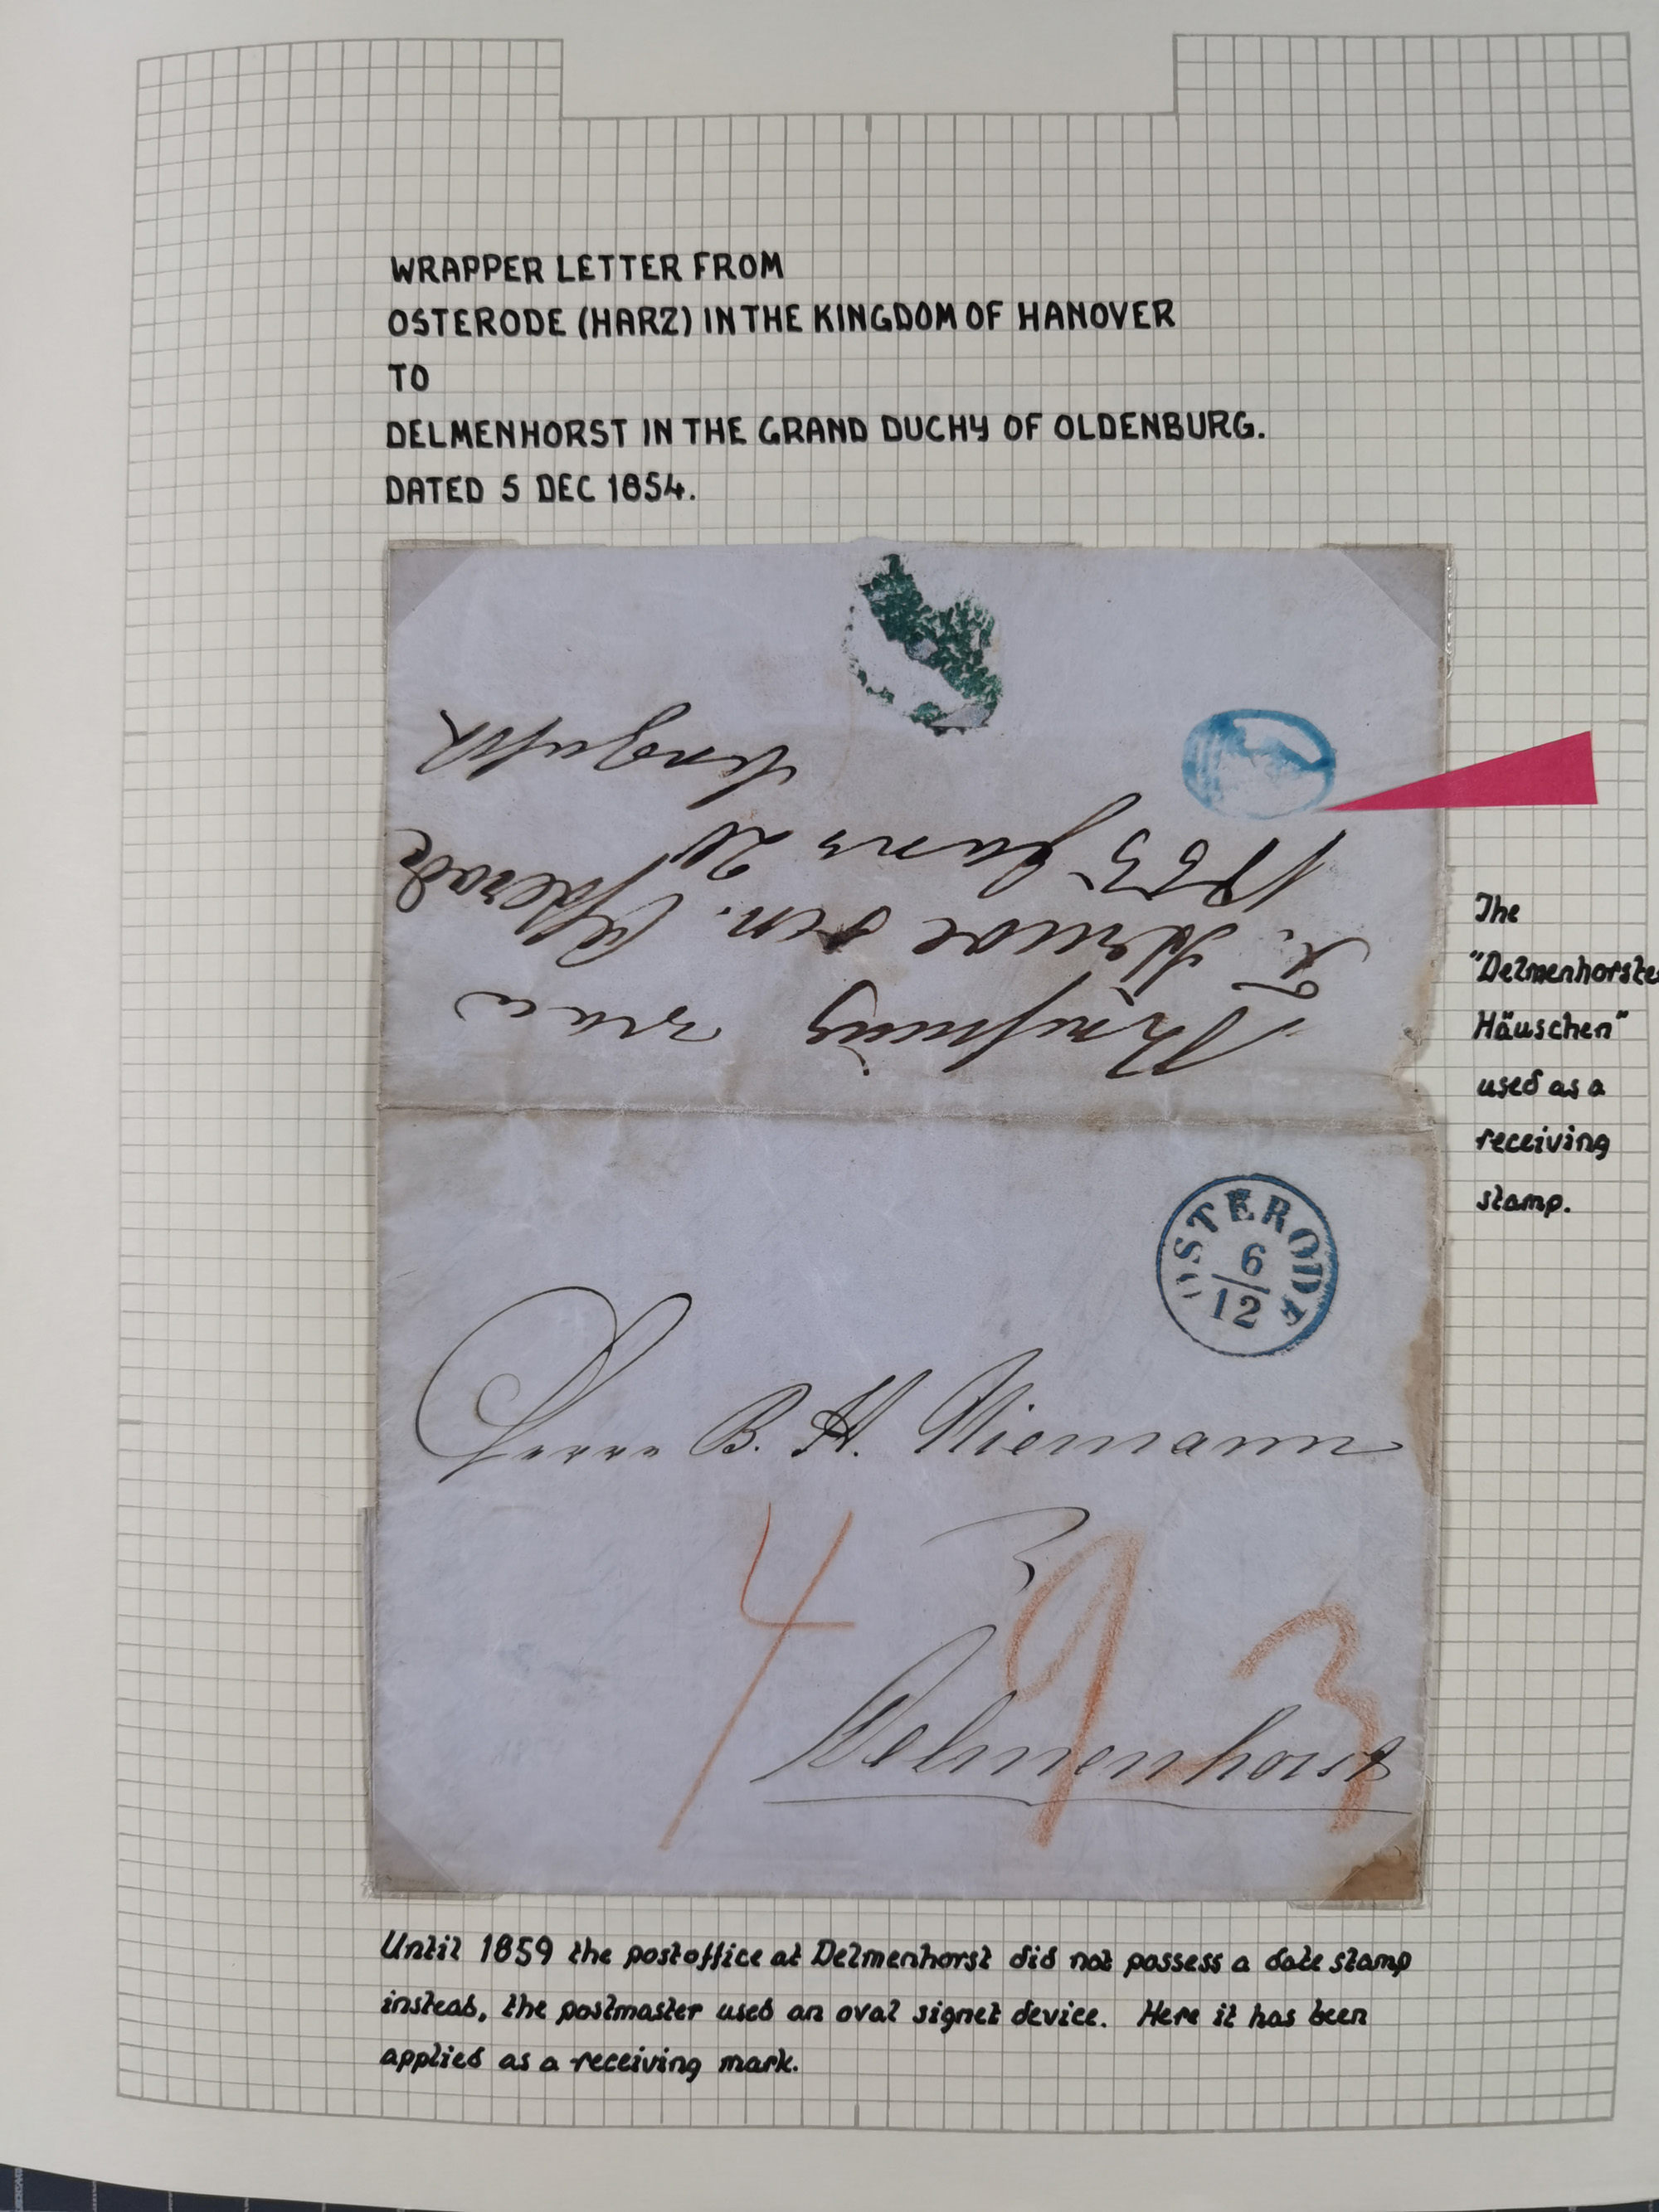 WRAPPER LETTER FROM
OSTERODE (HARZ) IN THE KINGDOM OF HANOVER
TO
DELMENHORST IN THE GRAND DUCHY OF OLDENBURG.
DATED 5 DEC 1854.
The
"Delmenhorster
Häuschen"
used as a
receiving
stamp.
OSTERODE
6
12
Herrn B. H. Niemann
4 9 3
Delmenhorst
Until 1859 the postoffice at Delmenhorst did not possess a date stamp
instead, the postmaster used an oval signet device. Here it has been
applied as a receiving mark.